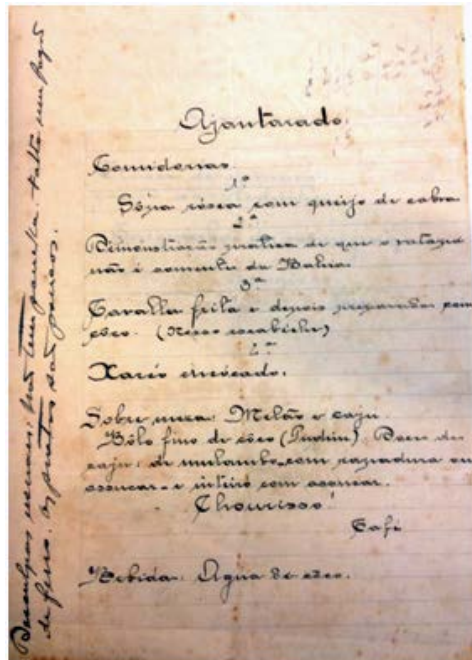 Ajantarado.
Comidorias.
1º
Sôpa rósca com queijo de cabra
2ª
Demonstração pratica de que o vatapá
não é somente da Bahia.
3ª
Cavalla frita e depois preparada com
côco. (Nosso escabeche)
4ª
Xaréo enseado.
Sobre mesa: Melão e caju.
Bôlo fino de côco (Pudim). Doces de
caju: de mulambo, com rapadura ou
assucar - e inteiro com assucar.
Chourisso!
Café
Bebida: Agua de côco.
Desculpas escusas: Não tem panella. Falta um fogão
de ferro. Os pratos são poucos.